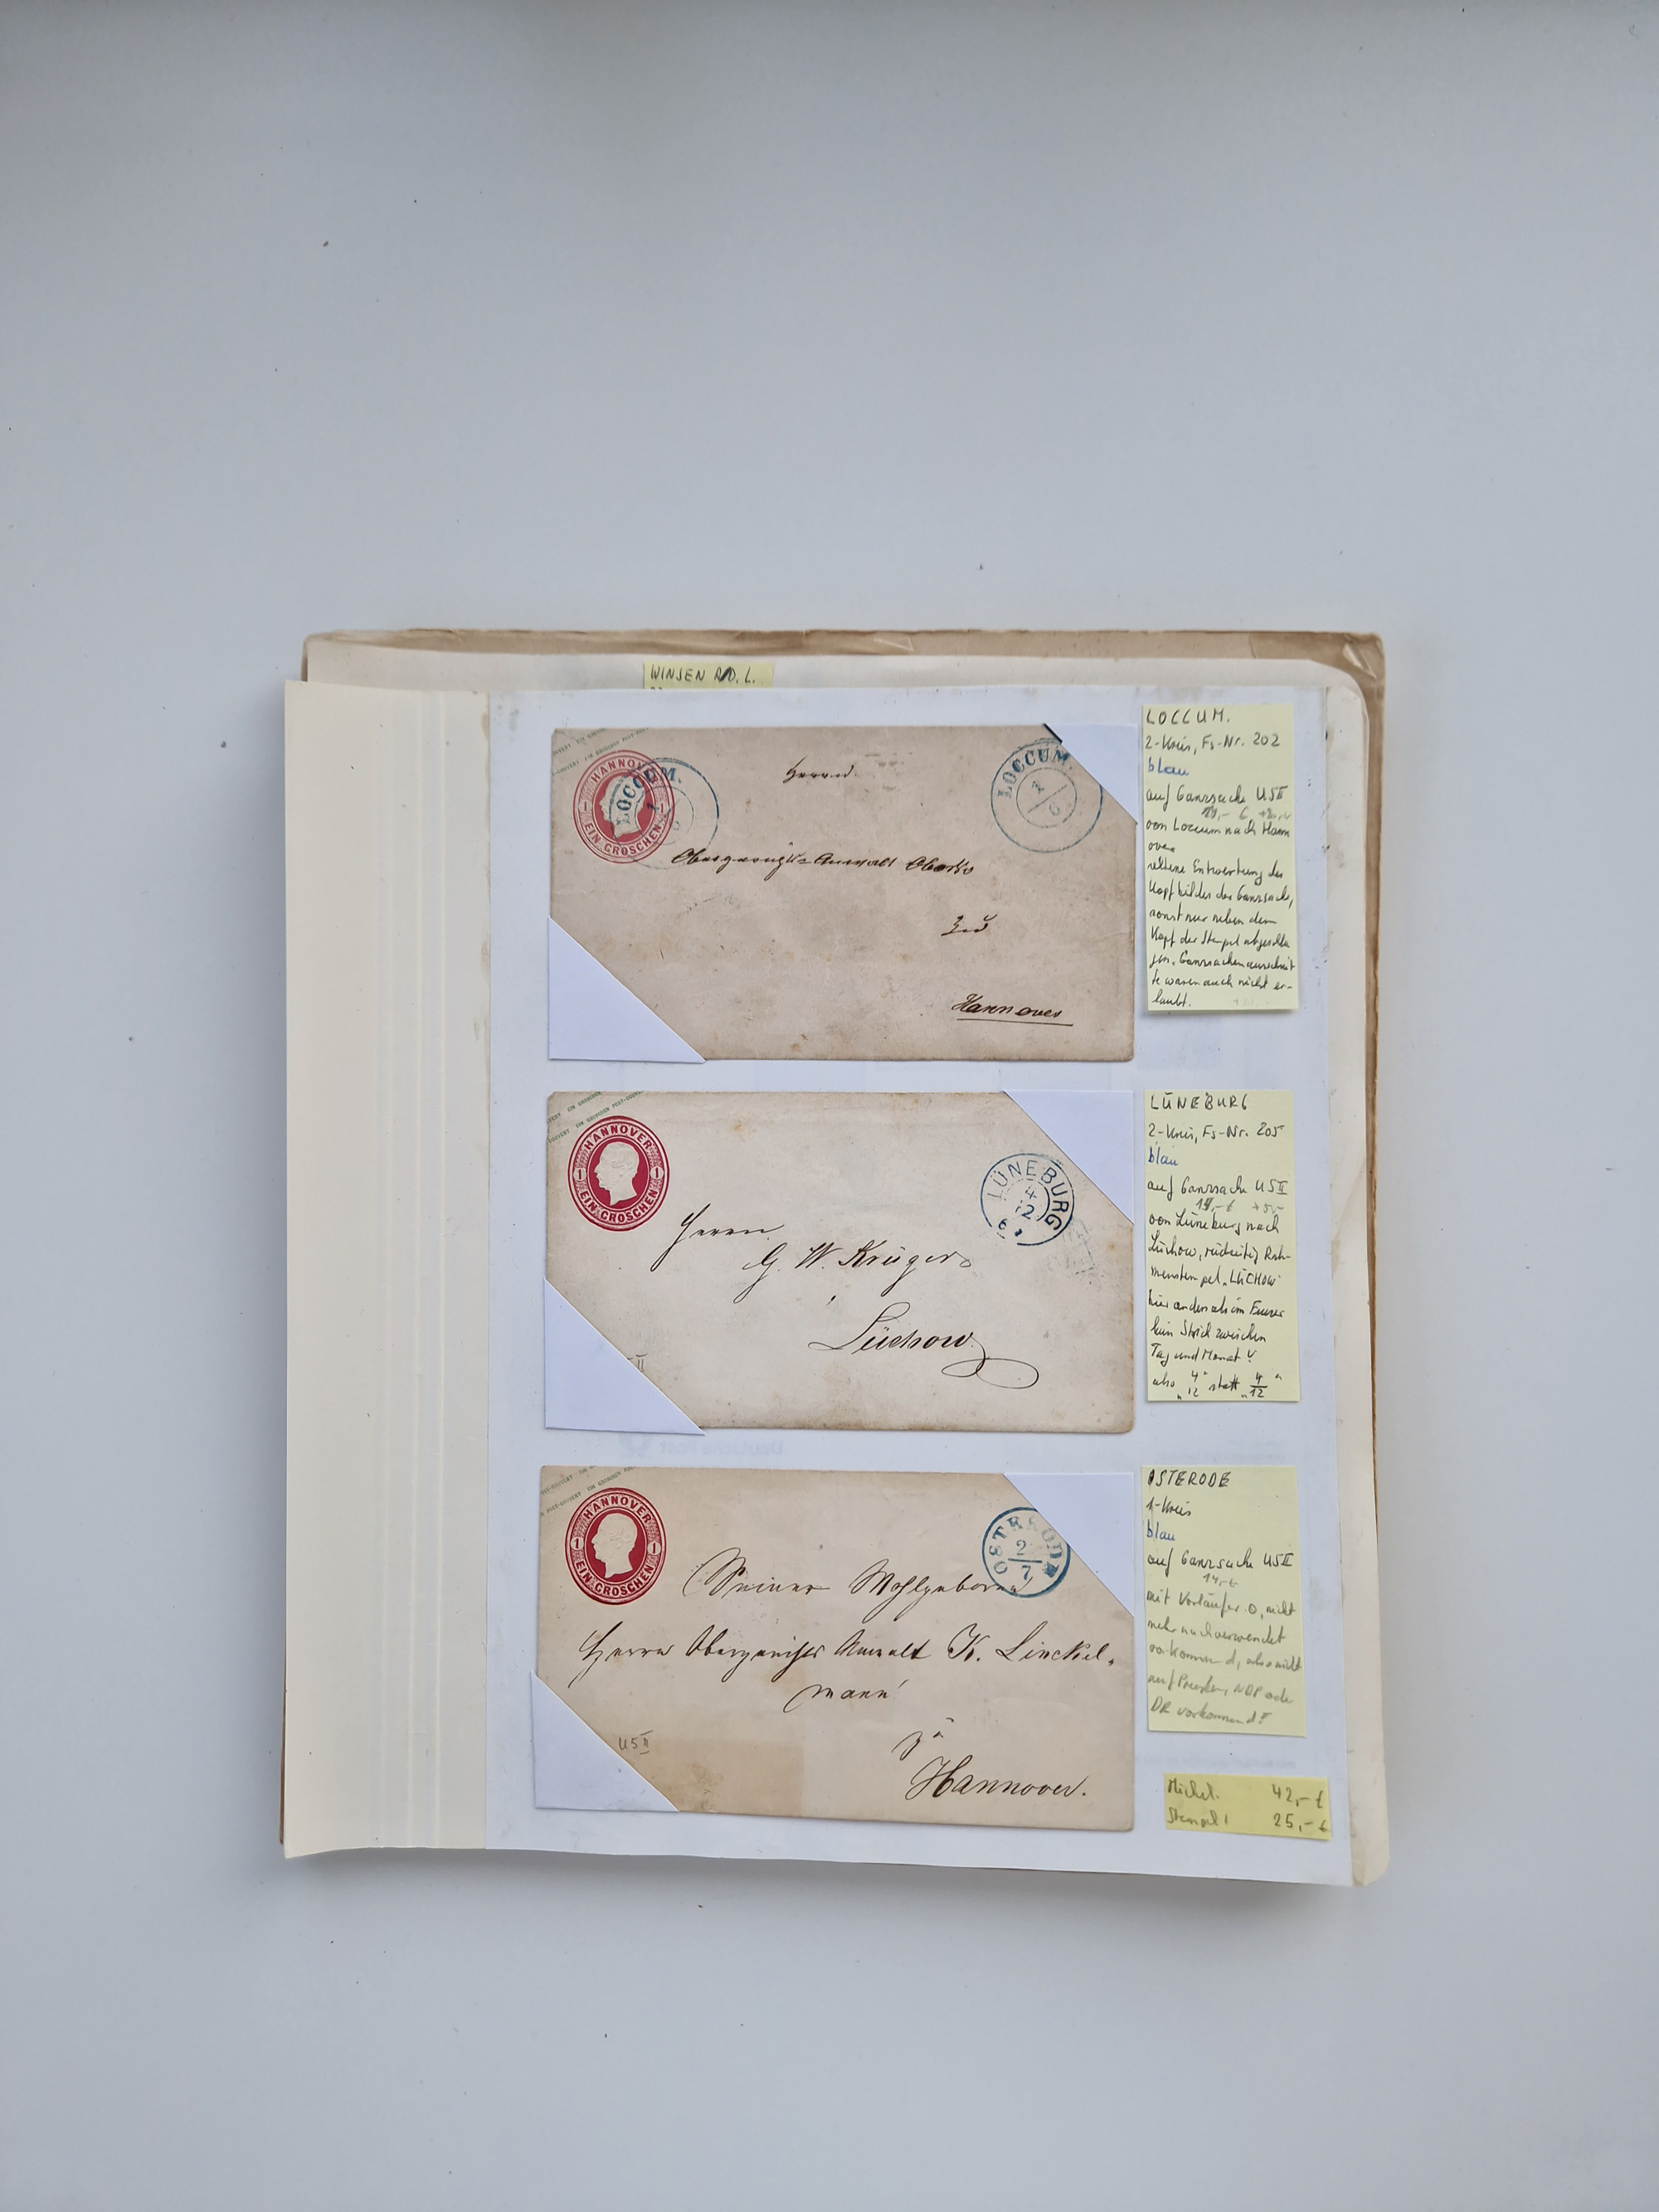 WINSEN A/D. L.
HANNOVER
1 1
EIN GROSCHEN
LOCCUM.
LOCCUM.
Herrn
Obergerichts-Anwalt
zu
Hannover
LOCCUM.
2-Kreis, Fs-Nr. 202
blau
auf Ganzsache U5II
von Loccum nach Hann
over
seltene Entwertung des
Kopfbildes der Ganzsache,
sonst nur neben dem
Kopf der Stempel abgeschla
gen. Ganzsachenausschnit
te waren auch nicht er-
laubt.
EIN GROSCHEN POST-COUVERT
HANNOVER
1 1
EIN GROSCHEN
LÜNEBURG
4
12
Herrn
G. W. Krüger
Lüchow
II
LÜNEBURG
2-Kreis, Fs-Nr. 205
blau
auf Ganzsache U5II
14,-€ +5,-
von Lüneburg nach
Lüchow, rückseitig Rah-
menstempel „LÜCHOW"
hier anders als im Feuser
kein Strich zwischen
Tag und Monat!
also „4 12" statt „4/12"
POST-COUVERT EIN GROSCHEN
HANNOVER
1 1
EIN GROSCHEN
OSTERODE
2
7
Seiner Wohlgeboren
Herrn Obergerichts Anwalt K. Linckel-
mann
zu
Hannover.
U5II
OSTERODE
1-Kreis
blau
auf Ganzsache U5II
14,-€
mit Vorläufer O, nicht
mehr nachverwendet
vorkommend, also nicht
auf Preußen, NDP oder
DR vorkommend!
Michel: 42,-€
Stempel: 25,-€